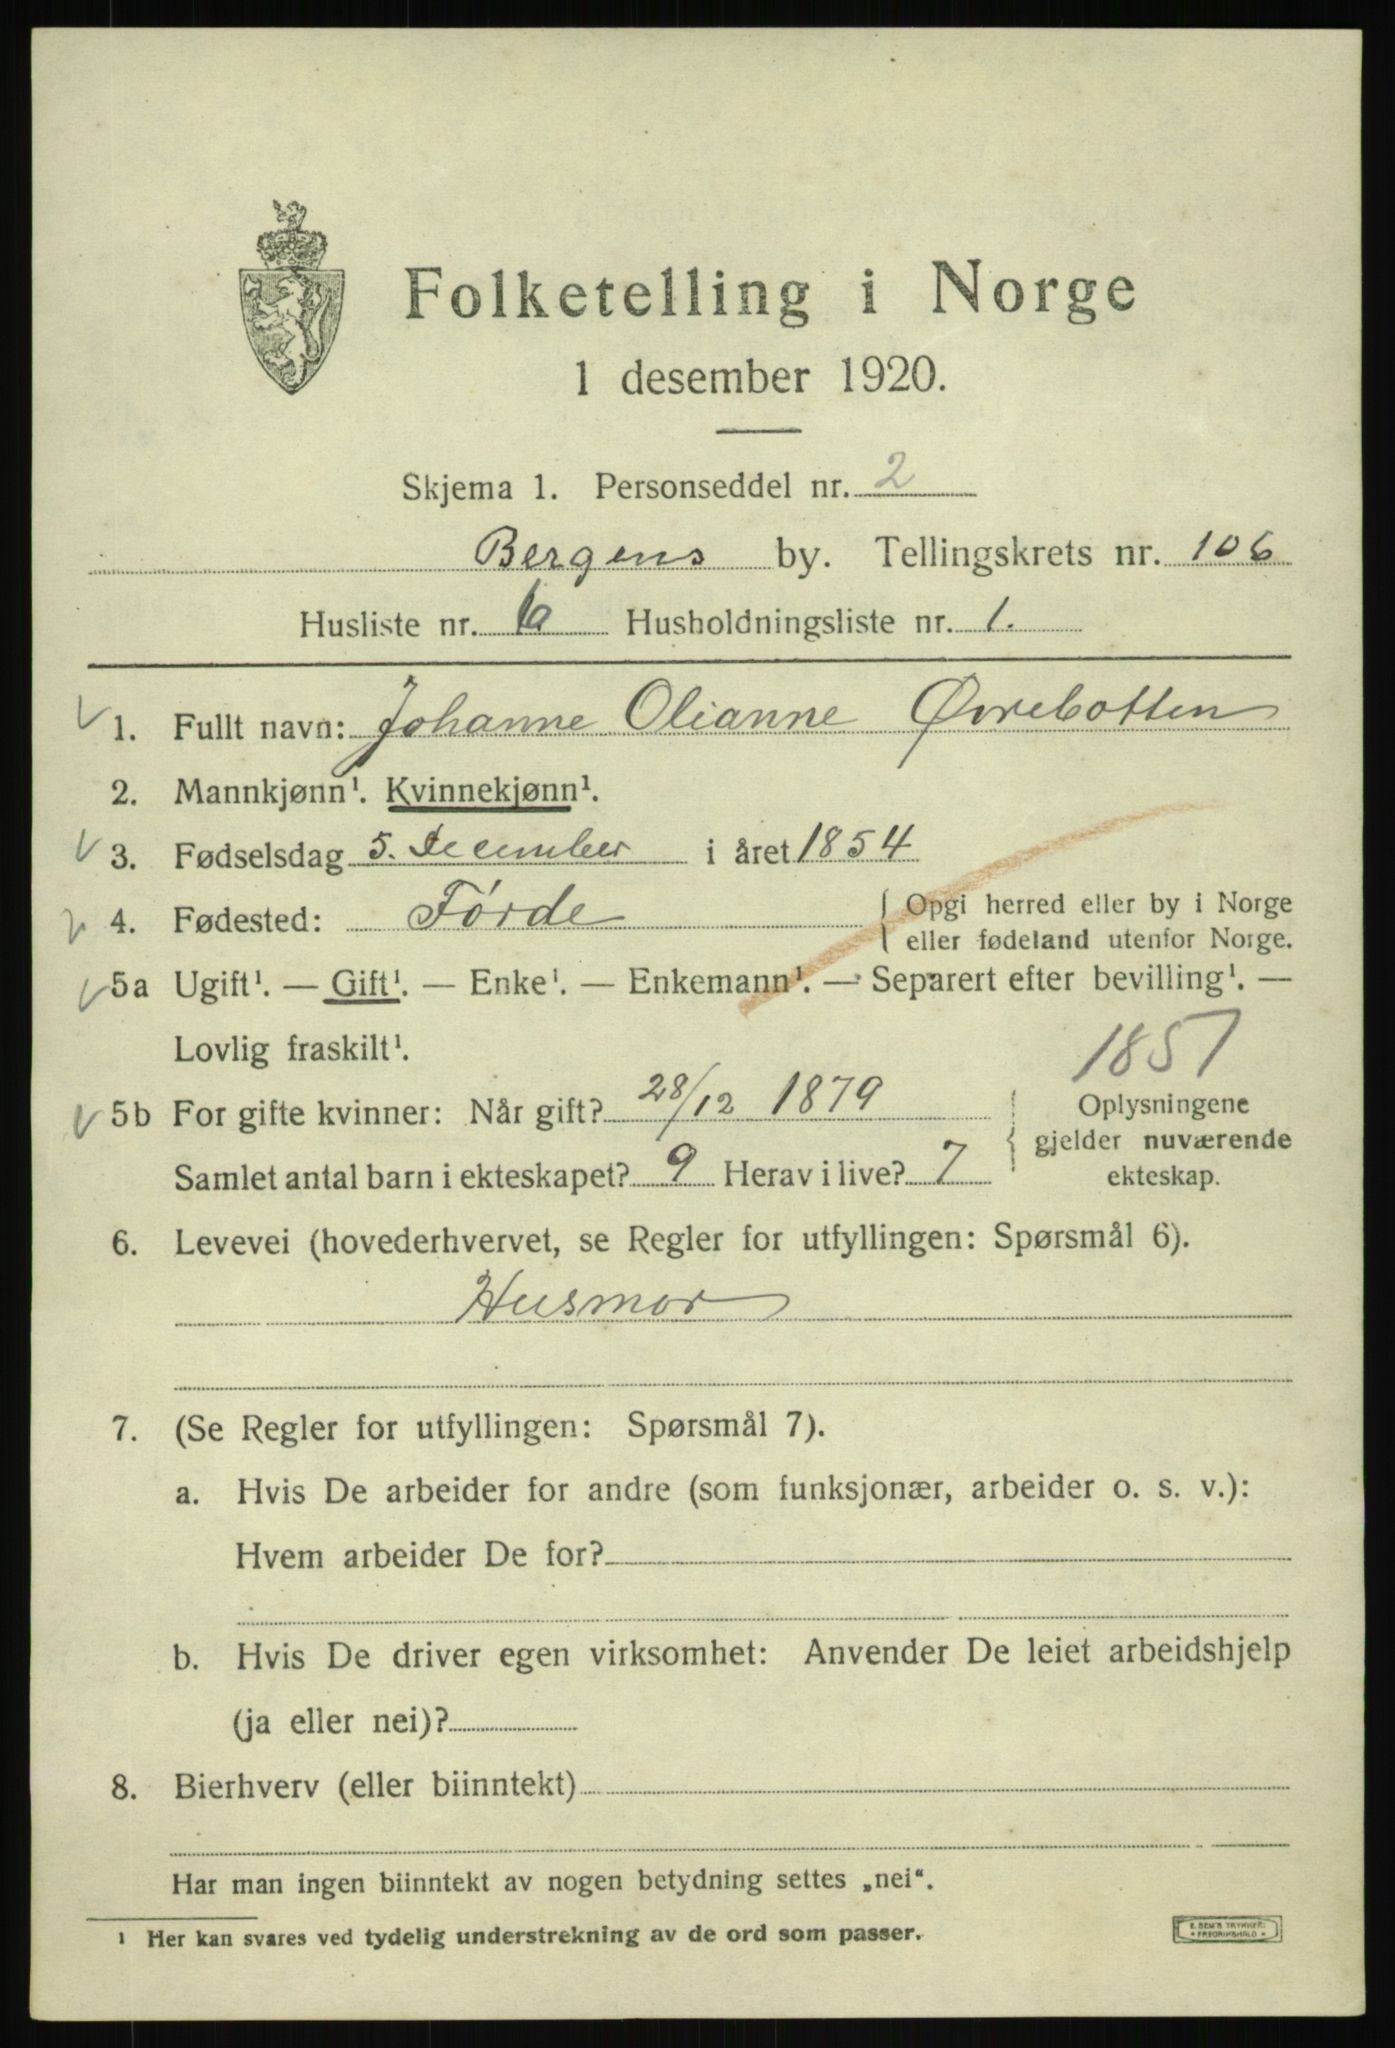 Folketelling i Norge
1 desember 1920.
Skjema 1. Personseddel nr. 2
Bergens by. Tellingskrets nr. 106
Husliste nr. Husholdningsliste nr. 1.
1. Fullt navn: Johanne Olianne Øvrebotten
2. Mannkjønn¹. Kvinnekjønn¹.
3. Fødselsdag 5. December i året 1854
4. Fødested: Førde { Opgi herred eller by i Norge
eller fødeland utenfor Norge.
5a Ugift¹. — Gift¹. — Enke¹. — Enkemann¹. — Separert efter bevilling¹. —
Lovlig fraskilt¹.
1857
5b For gifte kvinner: Når gift? 28/12 1879 { Oplysningene
gjelder nuværende
Samlet antal barn i ekteskapet? 9 Herav i live? 7 ekteskap.
6. Levevei (hovederhvervet, se Regler for utfyllingen: Spørsmål 6).
Husmor
7. (Se Regler for utfyllingen: Spørsmål 7).
a. Hvis De arbeider for andre (som funksjonær, arbeider o. s. v.):
Hvem arbeider De for?
b. Hvis De driver egen virksomhet: Anvender De leiet arbeidshjelp
(ja eller nei)?
8. Bierhverv (eller biinntekt)
Har man ingen biinntekt av nogen betydning settes „nei“.
¹ Her kan svares ved tydelig understrekning av de ord som passer.
E. SEM'S TRYKKERI
FREDRIKSHALD